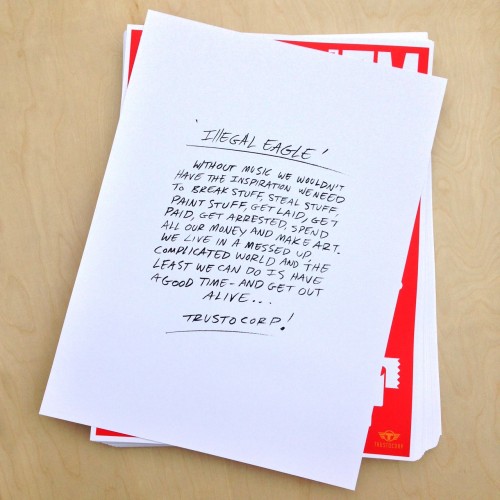 'ILLEGAL EAGLE'
WITHOUT MUSIC WE WOULDN'T
HAVE THE INSPIRATION WE NEED
TO BREAK STUFF, STEAL STUFF,
PAINT STUFF, GET LAID, GET
PAID, GET ARRESTED, SPEND
ALL OUR MONEY AND MAKE ART.
WE LIVE IN A MESSED UP,
COMPLICATED WORLD AND THE
LEAST WE CAN DO IS HAVE
A GOOD TIME - AND GET OUT
ALIVE...
TRUSTOCORP!
TRUSTOCORP